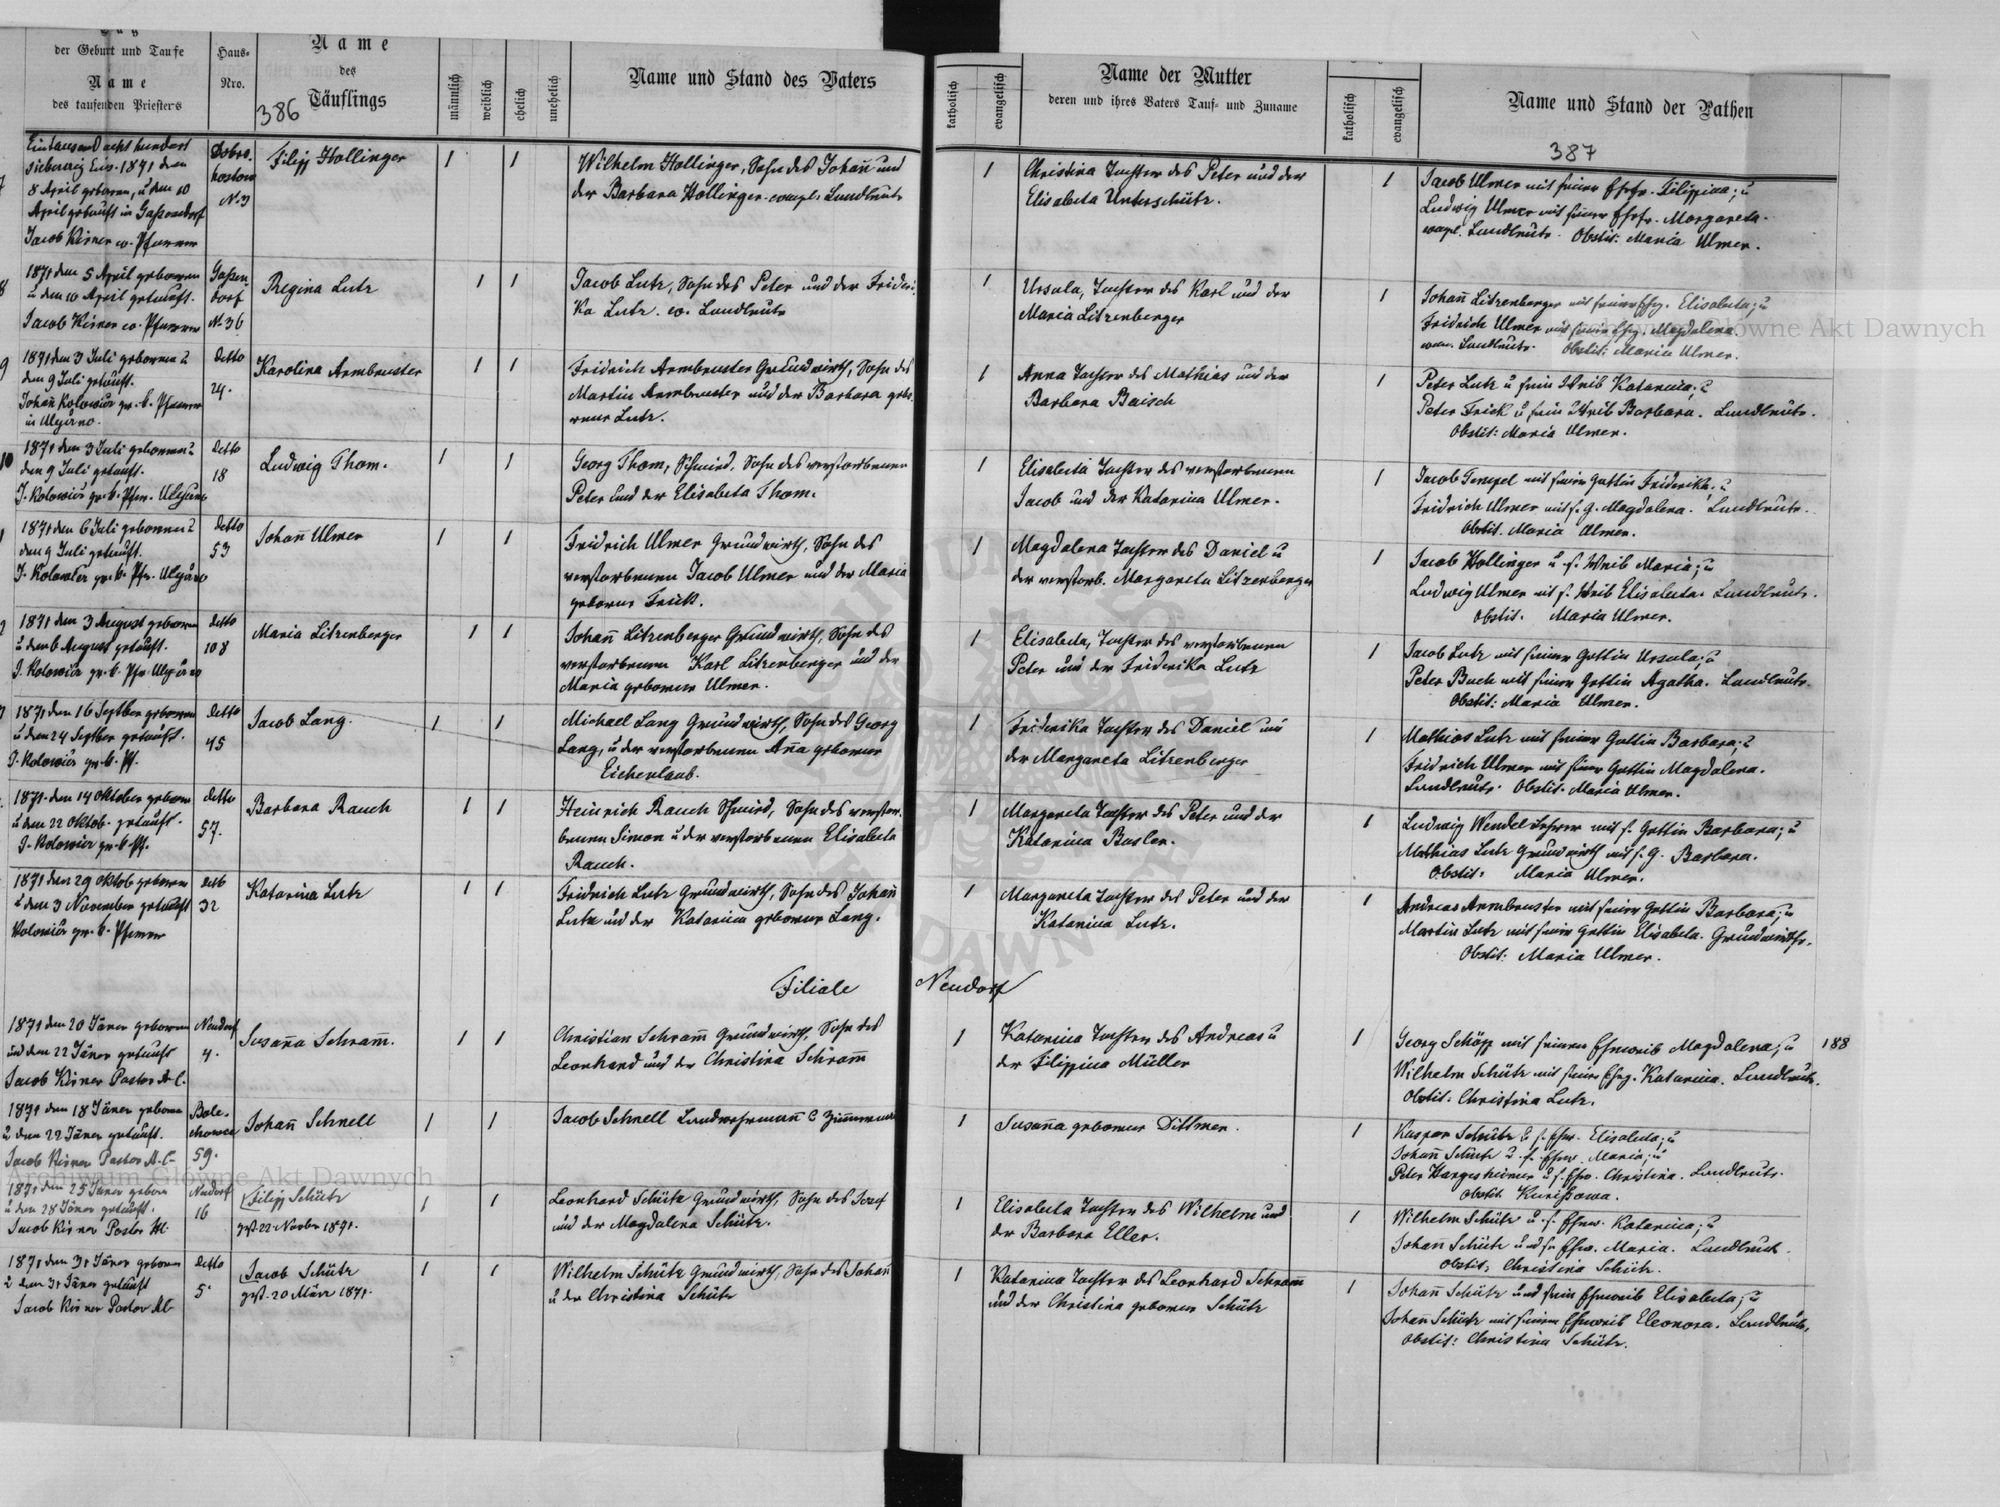 Tag
der Geburt und Taufe
Name
des taufenden Priesters
Haus-
Nro.
Name
des
Täuflings
386
männlich
weiblich
ehelich
unehelich
Name und Stand des Vaters
katholisch
evangelisch
Name der Mutter
deren und ihres Vaters Tauf- und Zuname
katholisch
evangelisch
Name und Stand der Pathen
387
Eintausend acht hundert
siebenzig Eins. 1871 den
8 April geboren, u. den 10
April getauft in Gassendorf
Jacob Kisner ev. Pfarrer
Dobro-
hostow
No 3
Filipp Hollinger
1
1
Wilhelm Hollinger, Sohn des Johañ und
der Barbara Hollinger. evangl. Landleute
1
Christina Tochter des Peter und der
Elisabeta Unterschütz.
1
Jacob Ulmer mit seiner Ehefr. Filippina; u
Ludwig Ulmer mit seiner Ehefr. Margareta.
evgl. Landleute. Obstit: Maria Ulmer.
8
1871 den 5 April geboren
u den 10 April getauft.
Jacob Kisner ev. Pfarrer
Gassen-
dorf
No 36
Regina Lutz
1
1
Jacob Lutz, Sohn des Peter und der Frideri-
ka Lutz. ev. Landleute
1
Ursula, Tochter des Karl und der
Maria Litzenberger
1
Johañ Litzenberger mit seiner Ehfr. Elisabeta; u
Fridrich Ulmer mit seiner Ehfr. Magdalena.
evan. Landleute. Obstit: Maria Ulmer.
9
1871 den 3 Juli geboren u
den 9 Juli getauft.
Johañ Kolowicz gr. k. Pfarrer
in Ulyczno.
Detto
24.
Karolina Armbruster
1
1
Fridrich Armbruster Grundwirth, Sohn des
Martin Armbruster und der Barbara gebo-
rene Lutz.
1
Anna Tochter des Mathias und der
Barbara Baisch
1
Peter Lutz u sein Weib Katarina; u
Peter Frick u sein Weib Barbara. Landleute.
Obstit: Maria Ulmer.
10
1871 den 3 Juli geboren u
den 9 Juli getauft.
J. Kolowicz gr. k. Pfrr. Ulyczno
Detto
18
Ludwig Thom.
1
1
Georg Thom, Schmied, Sohn des verstorbenen
Peter und der Elisabeta Thom.
1
Elisabeta Tochter des verstorbenen
Jacob und der Katarina Ulmer.
1
Jacob Tempel mit seiner Gattin Friderika; u
Fridrich Ulmer mit s. G. Magdalena. Landleute.
Obstit. Maria Ulmer.
1
1871 den 6 Juli geboren u
den 9 Juli getauft.
J. Kolowicz gr. k. Pfr. Ulyczno
Detto
53
Johañ Ulmer
1
1
Fridrich Ulmer Grundwirth, Sohn des
verstorbenen Jacob Ulmer und der Maria
geborene Frick.
1
Magdalena Tochter des Daniel u
der verstorb. Margareta Litzenberger
1
Jacob Hollinger u s. Weib Maria; u
Ludwig Ulmer mit s. Weib Elisabeta. Landleute.
Obstit. Maria Ulmer.
2
1871 den 3 August geboren
u den 6 August getauft.
J. Kolowicz gr. k. Pfr. Ulyczno
detto
108
Maria Litzenberger
1
1
Johañ Litzenberger Grundwirth, Sohn des
verstorbenen Karl Litzenberger und der
Maria geborene Ulmer.
1
Elisabeta, Tochter des verstorbenen
Peter und der Friderika Lutz
1
Jacob Lutz mit seiner Gattin Ursula; u
Peter Buch mit seiner Gattin Agatha. Landleute.
Obstit: Maria Ulmer.
1871 den 16 Septber geboren
u den 24 Septber getauft.
J. Kolowicz gr. k. Pf.
detto
45
Jacob Lang.
1
1
Michael Lang Grundwirth, Sohn des Georg
Lang, u der verstorbenen Aña geborene
Eichenlaub.
1
Friderika Tochter des Daniel und
der Margareta Litzenberger
1
Mathias Lutz mit seiner Gattin Barbara; u
Fridrich Ulmer mit seiner Gattin Magdalena.
Landleute. Obstit. Maria Ulmer.
1871 den 14 Oktober geboren
u den 22 Oktob. getauft.
J. Kolowicz gr. k. Pf.
detto
57.
Barbara Rauch
1
1
Heinrich Rauch Schmied, Sohn des verstor-
benen Simon u der verstorbenen Elisabeta
Rauch.
1
Margareta Tochter des Peter und der
Katarina Basler.
1
Ludwig Wendel Lehrer mit s. Gattin Barbara; u
Mathias Lutz Grundwirth mit s. G. Barbara.
Obstit: Maria Ulmer.
1871 den 29 Oktob geboren
u den 3 November getauft
Kolowicz gr. k. Pfarrer
detto
32
Katarina Lutz
1
1
Fridrich Lutz Grundwirth, Sohn des Johañ
Lutz und der Katarina geborene Lang.
1
Margareta Tochter des Peter und der
Katarina Lutz.
1
Andreas Armbruster mit seiner Gattin Barbara; u
Martin Lutz mit seiner Gattin Elisabeta. Grundwirthe.
Obstit: Maria Ulmer.
Filiale Neudorf
1871 den 20 Jäner geboren
und den 22 Jäner getauft
Jacob Kisner Pastor A.C.
Neudorf
4.
Susaña Schram̃.
1
1
Christian Schram̃ Grundwirth, Sohn des
Leonhard und der Christina Schram̃
1
Katarina Tochter des Andreas u
der Filippina Müller
1
Georg Schöpp mit seinem Eheweib Magdalena; u
Wilhelm Schütz mit seiner Ehfr. Katarina. Landleute.
Obstit: Christina Lutz.
188
1871 den 18 Jäner geboren
u den 22 Jäner getauft.
Jacob Kisner Pastor A.C.
Bole-
chowce
59.
Johañ Schnell
1
1
Jacob Schnell Landwehrmañ & Zim̃ermañ
1
Susaña geborene Dittmer.
1
Kaspar Schütz u s. Ehew. Elisabeta; u
Johañ Schütz u. s. Ehew. Maria; u
Peter Hargesheimer u s. Ehw. Christina. Landleute.
Obstit.
1871 den 25 Jäner geboren
u den 28 Jäner getauft.
Jacob Kisner Pastor
Neudorf
16
Filipp Schütz
gest. 22 Novber 1871.
1
1
Leonhard Schütz Grundwirth, Sohn des Josef
und der Magdalena Schütz.
1
Elisabeta Tochter des Wilhelm und
der Barbara Eller.
1
Wilhelm Schütz u. s. Ehew. Katarina; u
Johañ Schütz und sr Ehew. Maria. Landleute.
Obstit. Christina Schütz.
1871 den 31 Jäner geboren
u den 31 Jäner getauft
Jacob Kisner Pastor AC
detto
5.
Jacob Schütz
gest. 20 März 1871.
1
1
Wilhelm Schütz Grundwirth, Sohn des Johañ
u der Christina Schütz
1
Katarina Tochter des Leonhard Schram̃
und der Christina geborene Schütz
1
Johañ Schütz und sein Eheweib Elisabeta; u
Johañ Schütz mit seinem Eheweib Eleonora. Landleute,
Obstit: Christina Schütz.
Archiwum Główne Akt Dawnych
Główne Akt Dawnych